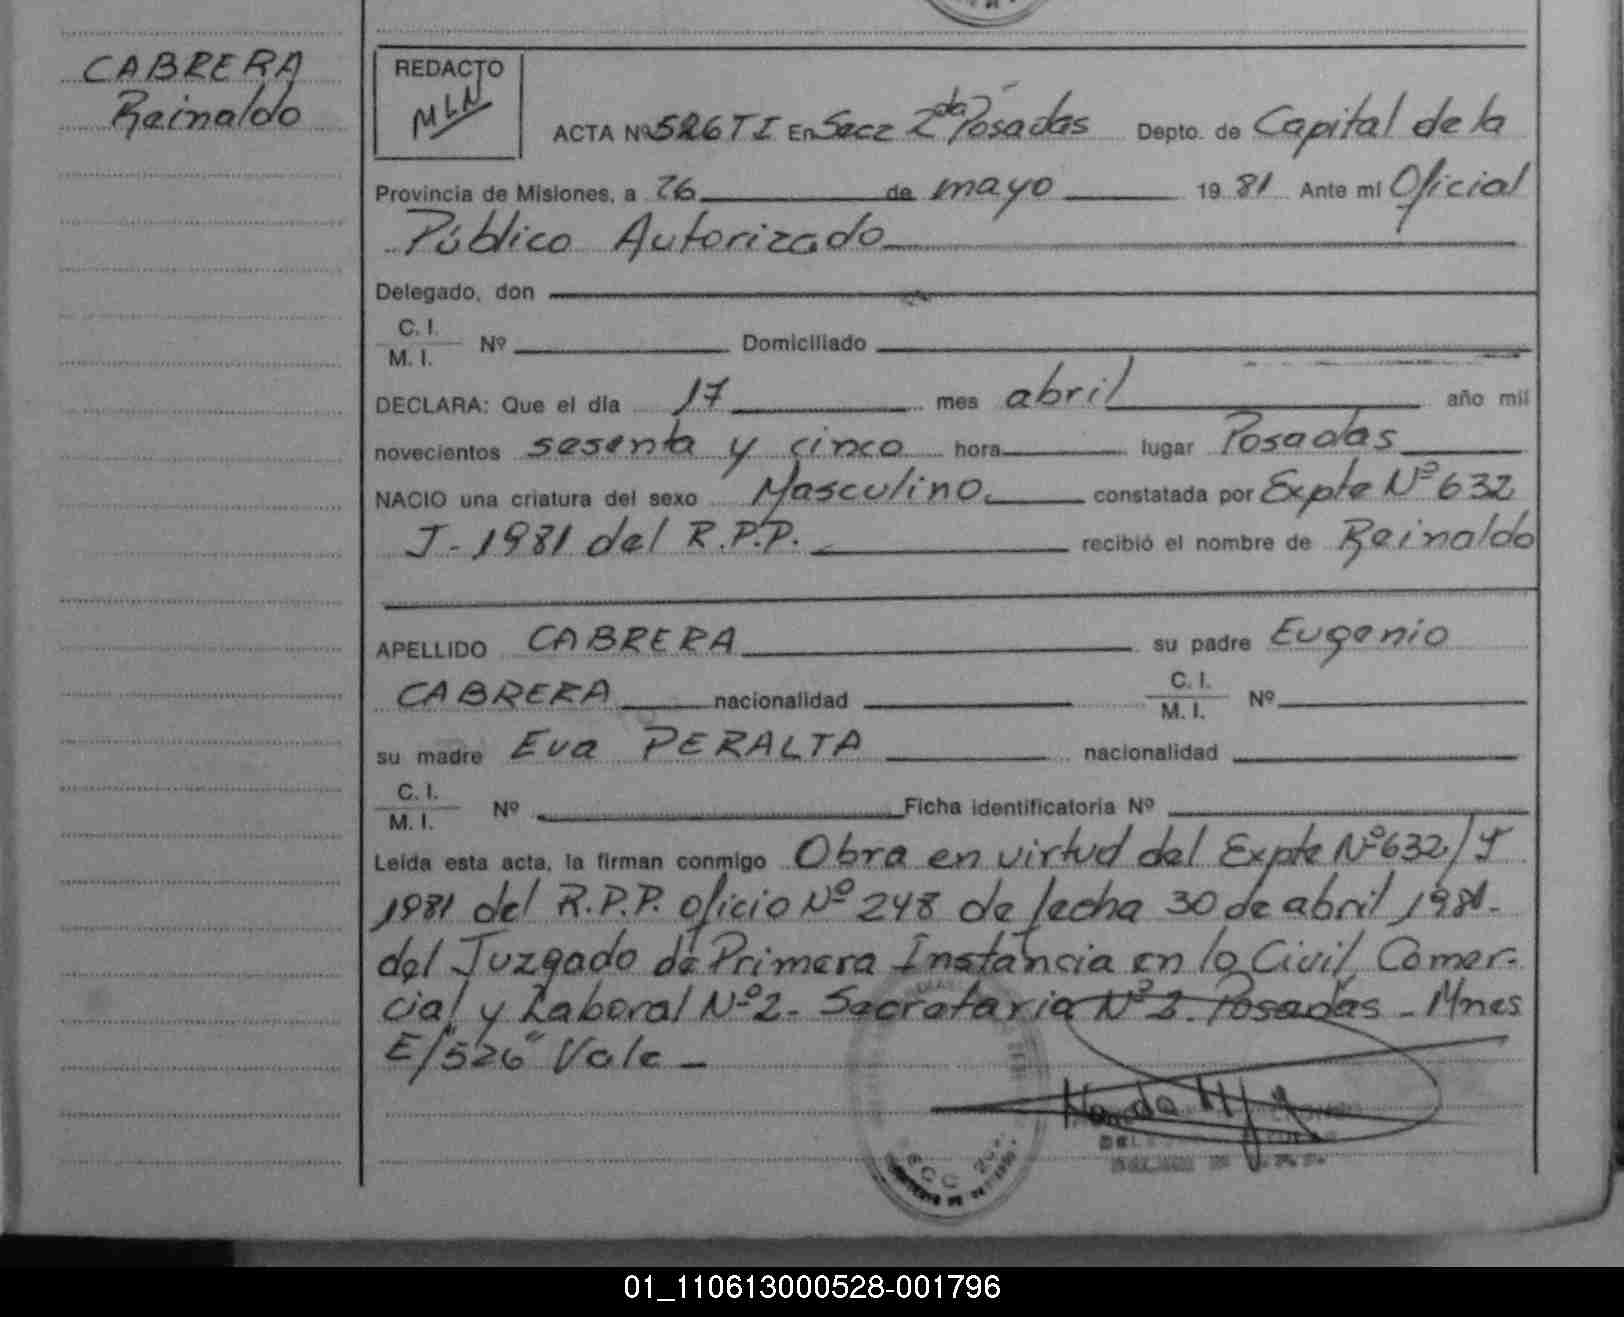 CABRERA
Reinaldo
REDACTO
MLN
ACTA Nº 526 T I En Secc 2da Posadas Depto. de Capital de la
Provincia de Misiones, a 26 de mayo 1981 Ante mi Oficial
Público Autorizado
Delegado, don
C. I.
M. I. Nº Domiciliado
DECLARA: Que el día 17 mes abril año mil
novecientos sesenta y cinco hora lugar Posadas
NACIO una criatura del sexo Masculino constatada por Expte Nº 632
J-1981 del R.P.P. recibió el nombre de Reinaldo
APELLIDO CABRERA su padre Eugenio
CABRERA nacionalidad C. I. M. I. Nº
su madre Eva PERALTA nacionalidad
C. I.
M. I. Nº Ficha identificatoria Nº
Leída esta acta, la firman conmigo Obra en virtud del Expte Nº 632/J
1981 del R.P.P. oficio Nº 248 de fecha 30 de abril 1981-
del Juzgado de Primera Instancia en lo Civil, Comer-
cial y Laboral Nº 2- Secretaria Nº 2. Posadas - Mnes
E/"526" Vale -
SECC 2da
01_110613000528-001796